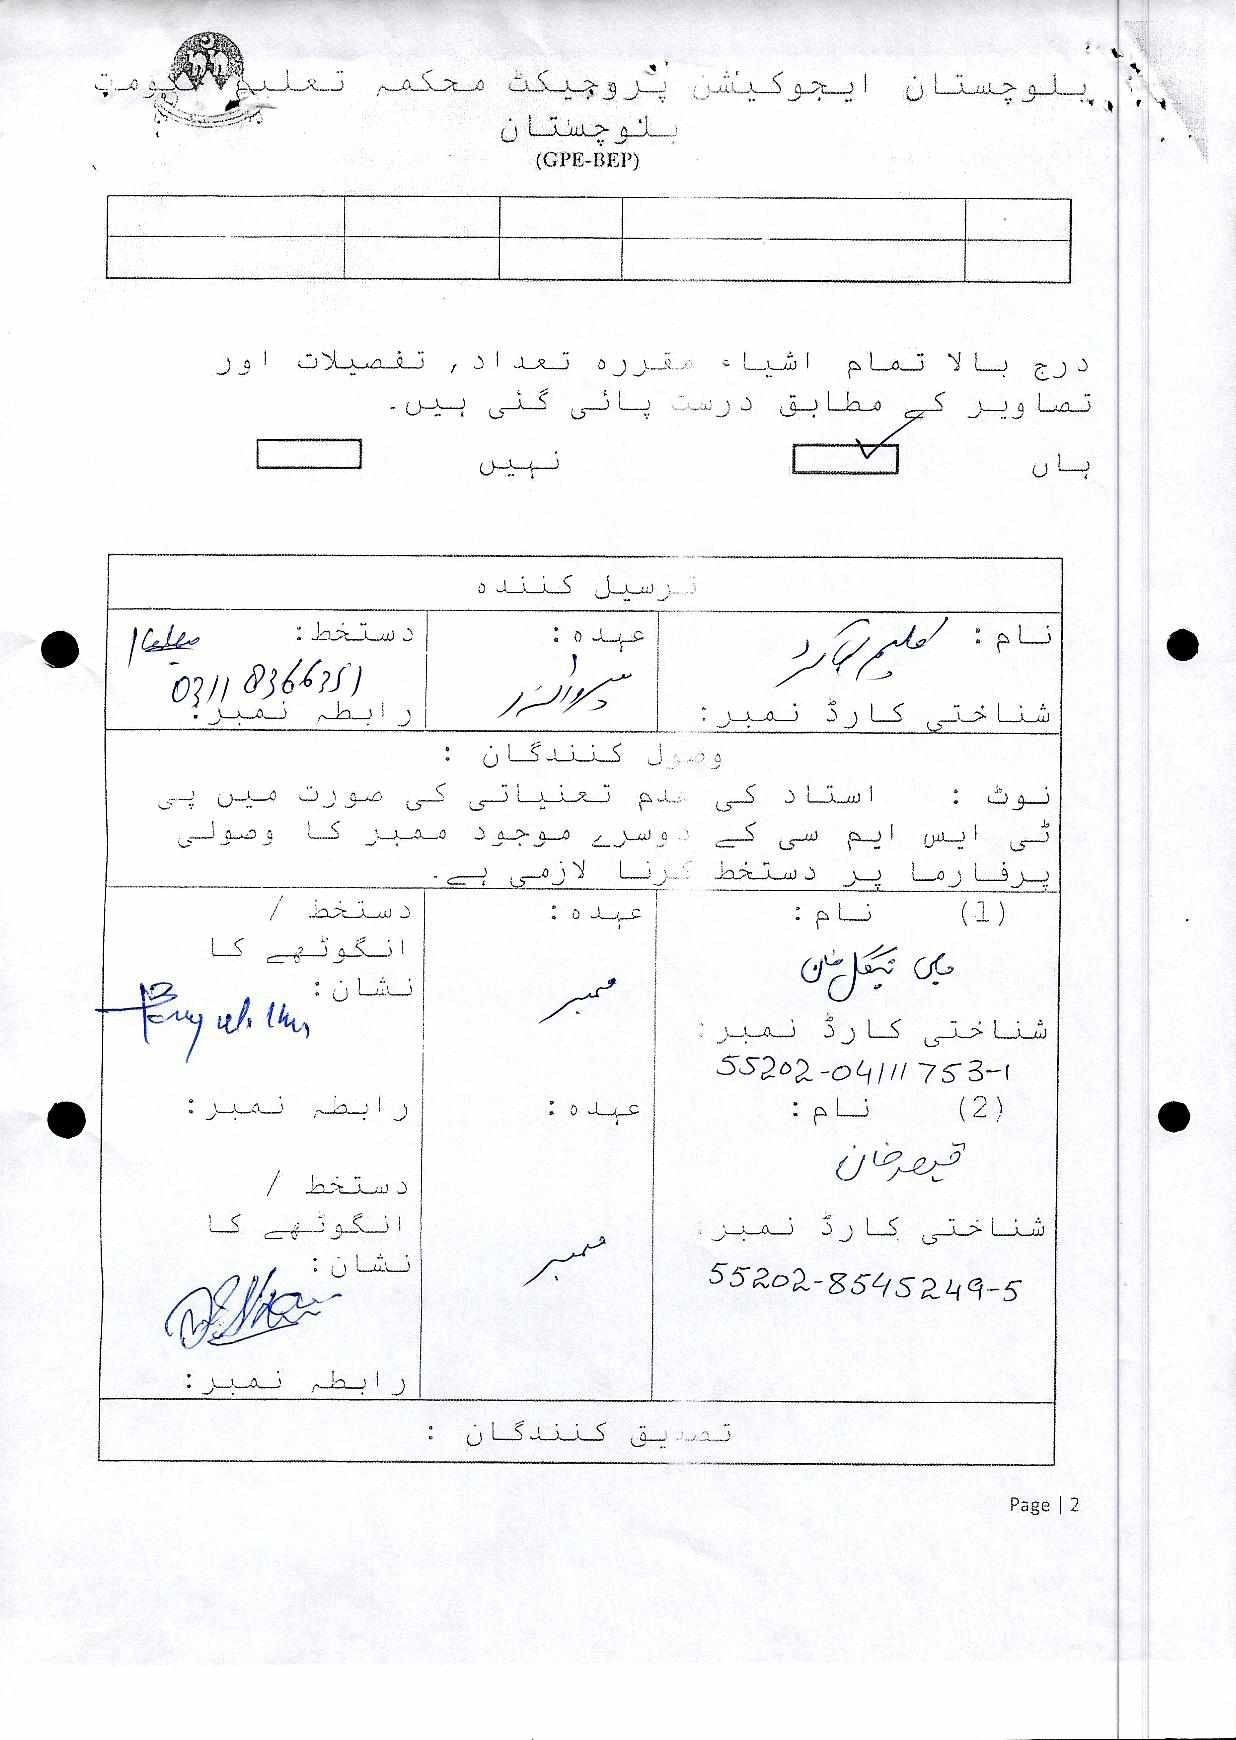 بلوچستان ایجوکیشن پروجیکٹ محکمہ تعلیم حکومت
بلوچستان
(GPE-BEP)
درج بالا تمام اشیاء مقررہ تعداد, تفصیلات اور
تصاویر کے مطابق درست پائی گئی ہیں۔
ہاں نہیں
ترسیل کنندہ
نام: عہدہ: دستخط:
03118366351
شناختی کارڈ نمبر: رابطہ نمبر:
وصول کنندگان :
نوٹ : استاد کی عدم تعنیاتی کی صورت میں پی
ٹی ایس ایم سی کے دوسرے موجود ممبر کا وصولی
پرفارما پر دستخط کرنا لازمی ہے۔
(1) نام: عہدہ: دستخط /
انگوٹھے کا
نشان:
ممبر
شناختی کارڈ نمبر:
55202-0411753-1
(2) نام: عہدہ: رابطہ نمبر:
خان
دستخط /
شناختی کارڈ نمبر: انگوٹھے کا
ممبر نشان:
55202-8545249-5
رابطہ نمبر:
تصدیق کنندگان :
Page | 2